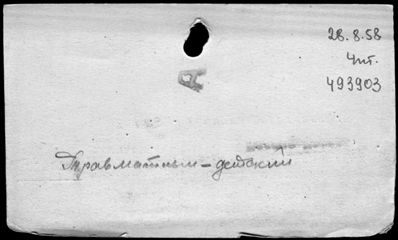 28.8.58
4пт.
493903
А
Травматизм – детский